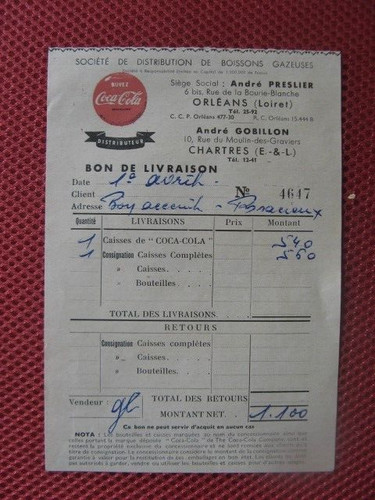 SOCIÉTÉ DE DISTRIBUTION DE BOISSONS GAZEUSES
Société à Responsabilité limitée au Capital de
BUVEZ
Coca-Cola
DISTRIBUTEUR
Siège Social : André PRESLIER
6 bis, Rue de la Bourie-Blanche
ORLÉANS (Loiret)
Tél. 25-92
C. C. P. Orléans 477-30 R. C. Orléans 15.444 B
André GOBILLON
10, Rue du Moulin-des-Graviers
CHARTRES (E.-&-L.)
Tél. 12-41
BON DE LIVRAISON
Date 1er avril
Client No 4647
Adresse Bon accueil -
Quantité LIVRAISONS Prix Montant
1 Caisses de "COCA-COLA" 540
1 Consignation Caisses Complètes 560
" Caisses.
" Bouteilles.
TOTAL DES LIVRAISONS.
RETOURS
Consignation Caisses complètes
" Caisses.
" Bouteilles.
Vendeur : TOTAL DES RETOURS
MONTANT NET. 1.100
Ce bon ne peut servir d'acquit en aucun cas
NOTA : Les bouteilles et caisses marquées au nom du concessionnaire ainsi que
celles portant la marque déposée "Coca-Cola" de The Coca-Cola Company sont et
restent la propriété exclusive du concessionnaire et ne sont remises aux clients
à titre de consignation. Le concessionnaire